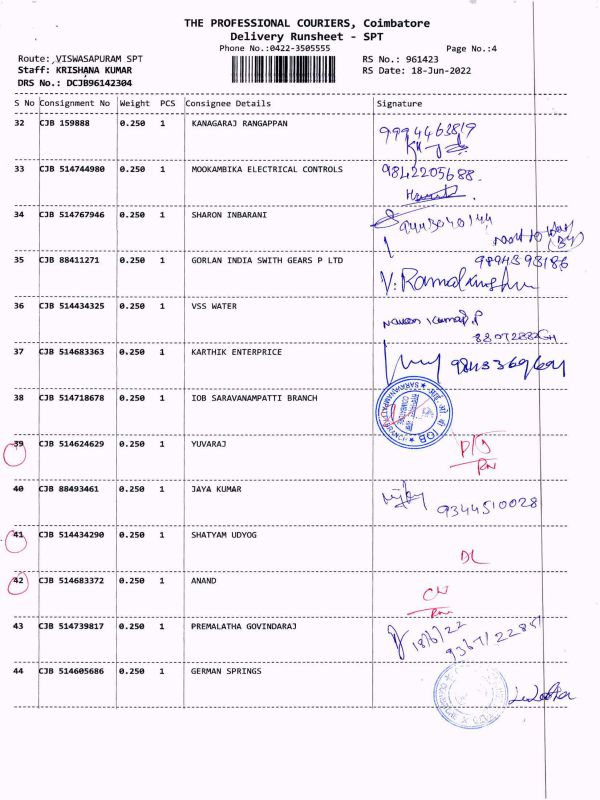 THE PROFESSIONAL COURIERS, Coimbatore
Delivery Runsheet - SPT
Phone No.:0422-3505555 Page No.:4
Route: VISWASAPURAM SPT RS No.: 961423
Staff: KRISHANA KUMAR RS Date: 18-Jun-2022
DRS No.: DCJB96142304
S No Consignment No Weight PCS Consignee Details Signature
32 CJB 159888 0.250 1 KANAGARAJ RANGAPPAN 9994463819
33 CJB 514744980 0.250 1 MOOKAMBIKA ELECTRICAL CONTROLS 9842205688
34 CJB 514767946 0.250 1 SHARON INBARANI
35 CJB 88411271 0.250 1 GORLAN INDIA SWITH GEARS P LTD
36 CJB 514434325 0.250 1 VSS WATER
37 CJB 514683363 0.250 1 KARTHIK ENTERPRICE
38 CJB 514718678 0.250 1 IOB SARAVANAMPATTI BRANCH
39 CJB 514624629 0.250 1 YUVARAJ
40 CJB 88493461 0.250 1 JAYA KUMAR 9344510028
41 CJB 514434290 0.250 1 SHATYAM UDYOG DL
42 CJB 514683372 0.250 1 ANAND
43 CJB 514739817 0.250 1 PREMALATHA GOVINDARAJ 18/6/22
44 CJB 514605686 0.250 1 GERMAN SPRINGS